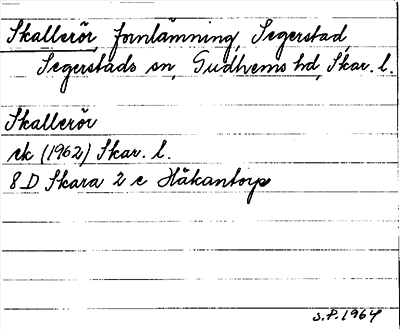 Skallerör, fornlämning, Segerstad,
Segerstads sn, Gudhems hd, Skar. l.
Skallerör
ek (1962) Skar. l.
8 D Skara 2 c Håkantorp
S.P. 1964